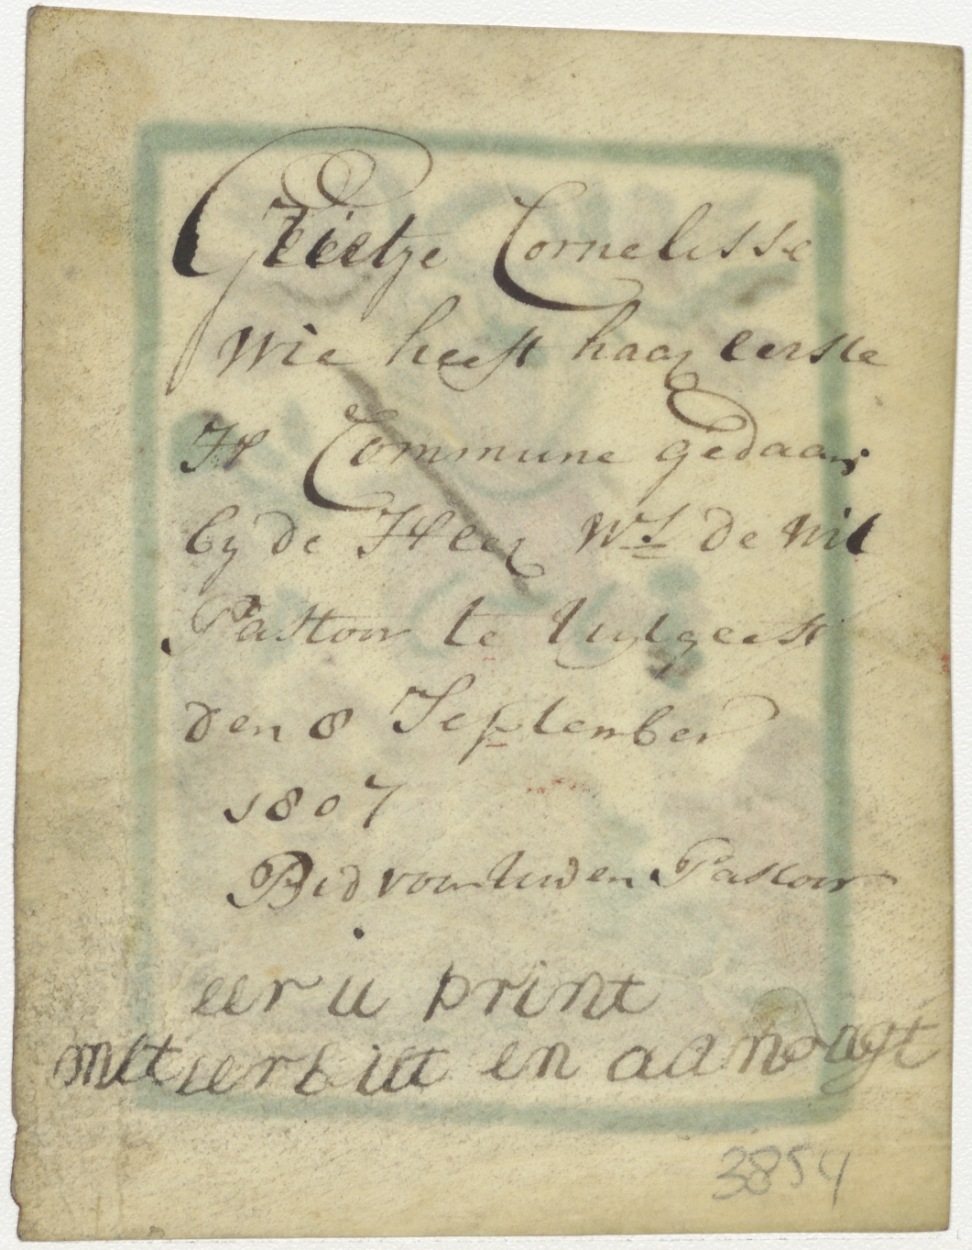 Grietje Cornelisse
Wie heeft haar eerste
H Commune gedaan
by de Heer Ws de Wit
Pastoor te Uytgeest
den 8 September
1807
Bid voor uwen Pastoor
eer u print
met eerbiet en aandagt
3854